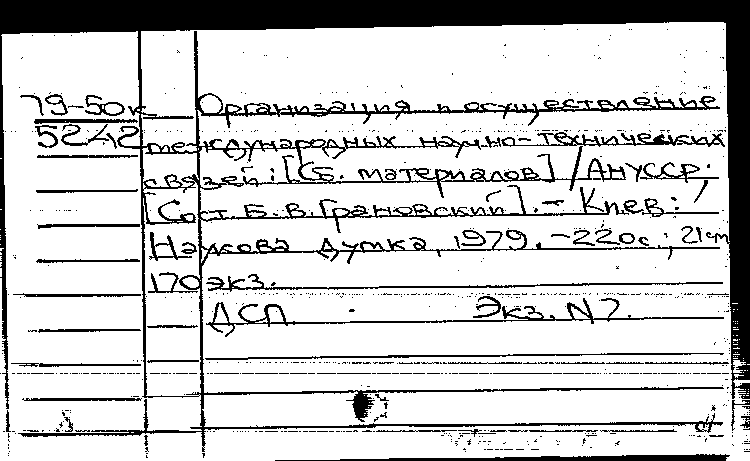 79-50к Организация и осуществление
5242 международных научно-технических
связей: [Сб. материалов] / АН УССР;
[Сост. Б. В. Грановский]. – Киев:
Наукова думка, 1979. – 220 с.; 21 см
170 экз.
ДСП. Экз. N 7.